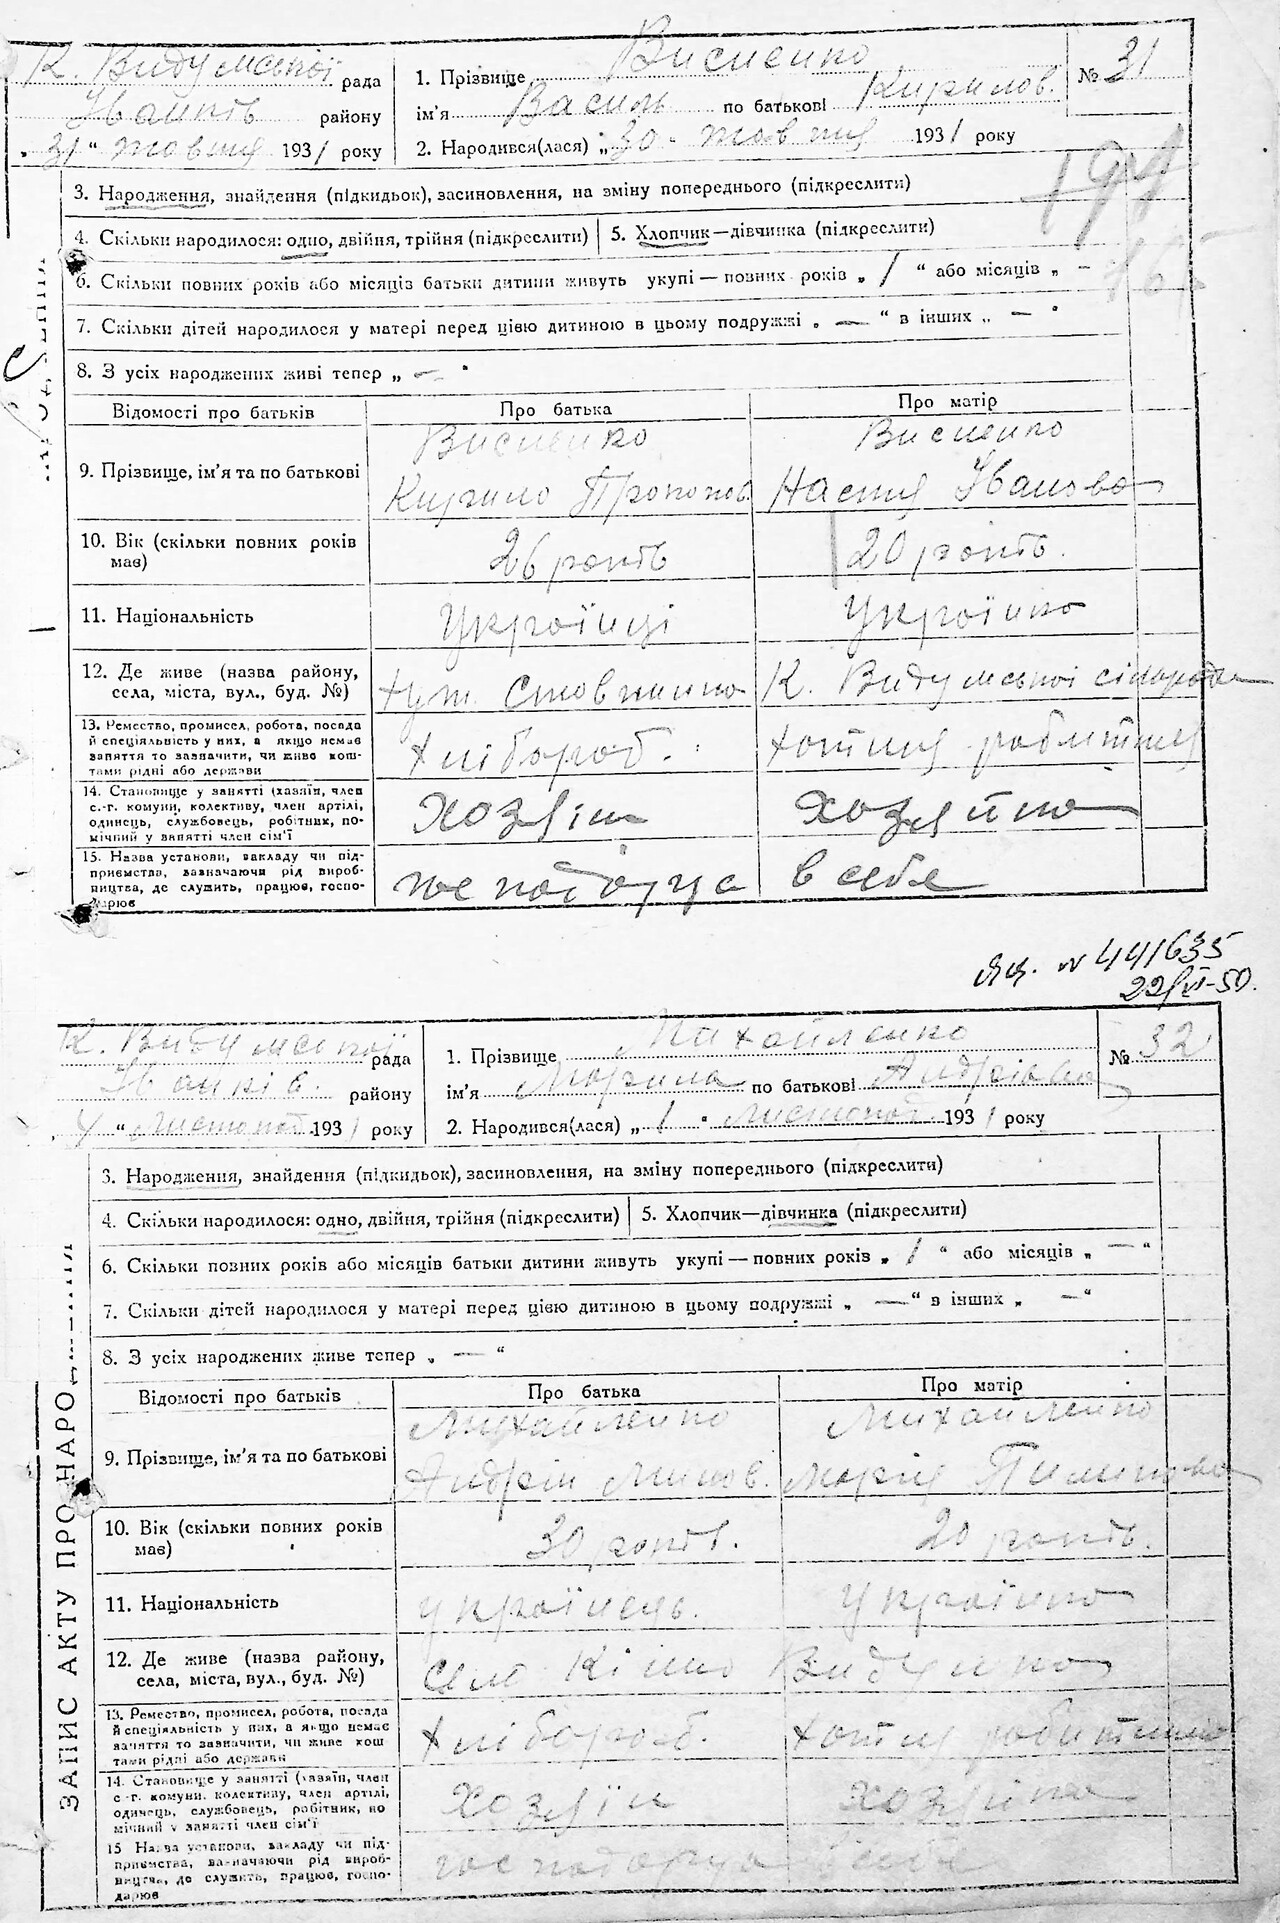 К. Видумської рада
Іванків району
„ 31 “ жовтня 1931 року
1. Прізвище Висиенко
ім'я Василь по батькові Кирилов.
2. Народився(лася) „ 30 “ жовтня 1931 року
№ 31
3. Народження, знайдення (підкидьок), засиновлення, на зміну попереднього (підкреслити)
4. Скільки народилося: одно, двійня, трійня (підкреслити)
5. Хлопчик—дівчинка (підкреслити)
6. Скільки повних років або місяців батьки дитини живуть укупі — повних років „ 1 “ або місяців „ —
7. Скільки дітей народилося у матері перед цією дитиною в цьому подружжі „ — “ в інших „ — “
8. З усіх народжених живі тепер „ — “
Відомості про батьків
Про батька
Про матір
9. Прізвище, ім'я та по батькові
Висиенко
Кирило Прокопов.
Висиенко
Настя Іванова
10. Вік (скільки повних років
має)
26 років
20 років.
11. Національність
Українці
Українка
12. Де живе (назва району,
села, міста, вул., буд. №)
хут. К. Видумської сільради
13. Ремество, промисел, робота, посада
й спеціяльність у них, а якщо немає
заняття то зазначити, чи живе кош-
тами рідні або держави
хлібороб.
хатня робітниця
14. Становище у занятті (хазяїн, член
с.-г. комуни, колективу, член артілі,
одинець, службовець, робітник, по-
мічний у занятті член сім'ї
хозяїн
хозяйка
15. Назва установи, закладу чи під-
приємства, зазначаючи рід вироб-
ництва, де служить, працює, госпо-
дарює
господарує в себе
№ 441635
22/VI-50.
К. Видумської рада
Іванків. району
„ 4 “ Листопад. 1931 року
1. Прізвище Михайленко
ім'я Марина по батькові Андріівна
2. Народився(лася) „ 1 “ Листопад. 1931 року
№ 32
ЗАПИС АКТУ ПРО НАРОДЖЕННЯ
3. Народження, знайдення (підкидьок), засиновлення, на зміну попереднього (підкреслити)
4. Скільки народилося: одно, двійня, трійня (підкреслити)
5. Хлопчик—дівчинка (підкреслити)
6. Скільки повних років або місяців батьки дитини живуть укупі — повних років „ 1 “ або місяців „ — “
7. Скільки дітей народилося у матері перед цією дитиною в цьому подружжі „ — “ в інших „ — “
8. З усіх народжених живе тепер „ — “
Відомості про батьків
Про батька
Про матір
9. Прізвище, ім'я та по батькові
Михайленко
Андрій Минов.
Михайленко
Марія Пилипова
10. Вік (скільки повних років
має)
30 років.
20 років.
11. Національність
українець.
Українка
12. Де живе (назва району,
села, міста, вул., буд. №)
Видумка
13. Ремество, промисел, робота, посада
й спеціяльність у них, а якщо немає
заняття то зазначити, чи живе кош
тами рідні або держави
хлібороб.
хатня робітниця
14. Становище у занятті (хазяїн, член
с-г. комуни, колективу, член артілі,
одинець, службовець, робітник, по
мічний у занятті член сім'ї
хозяїн
хозяйка
15 Назва установи, закладу чи під-
приємства, зазначаючи рід вироб-
ництва, де служить, працює, госпо-
дарює
господарує в себе